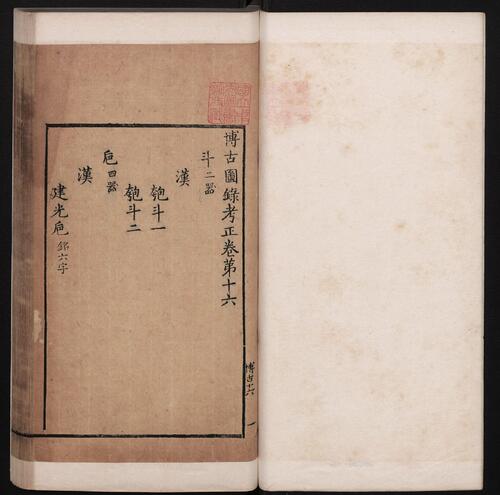 博古圖錄考正卷第十六
斗二器
漢
匏斗一
匏斗二
巵四器
漢
建光巵 銘六字
博古十六
一